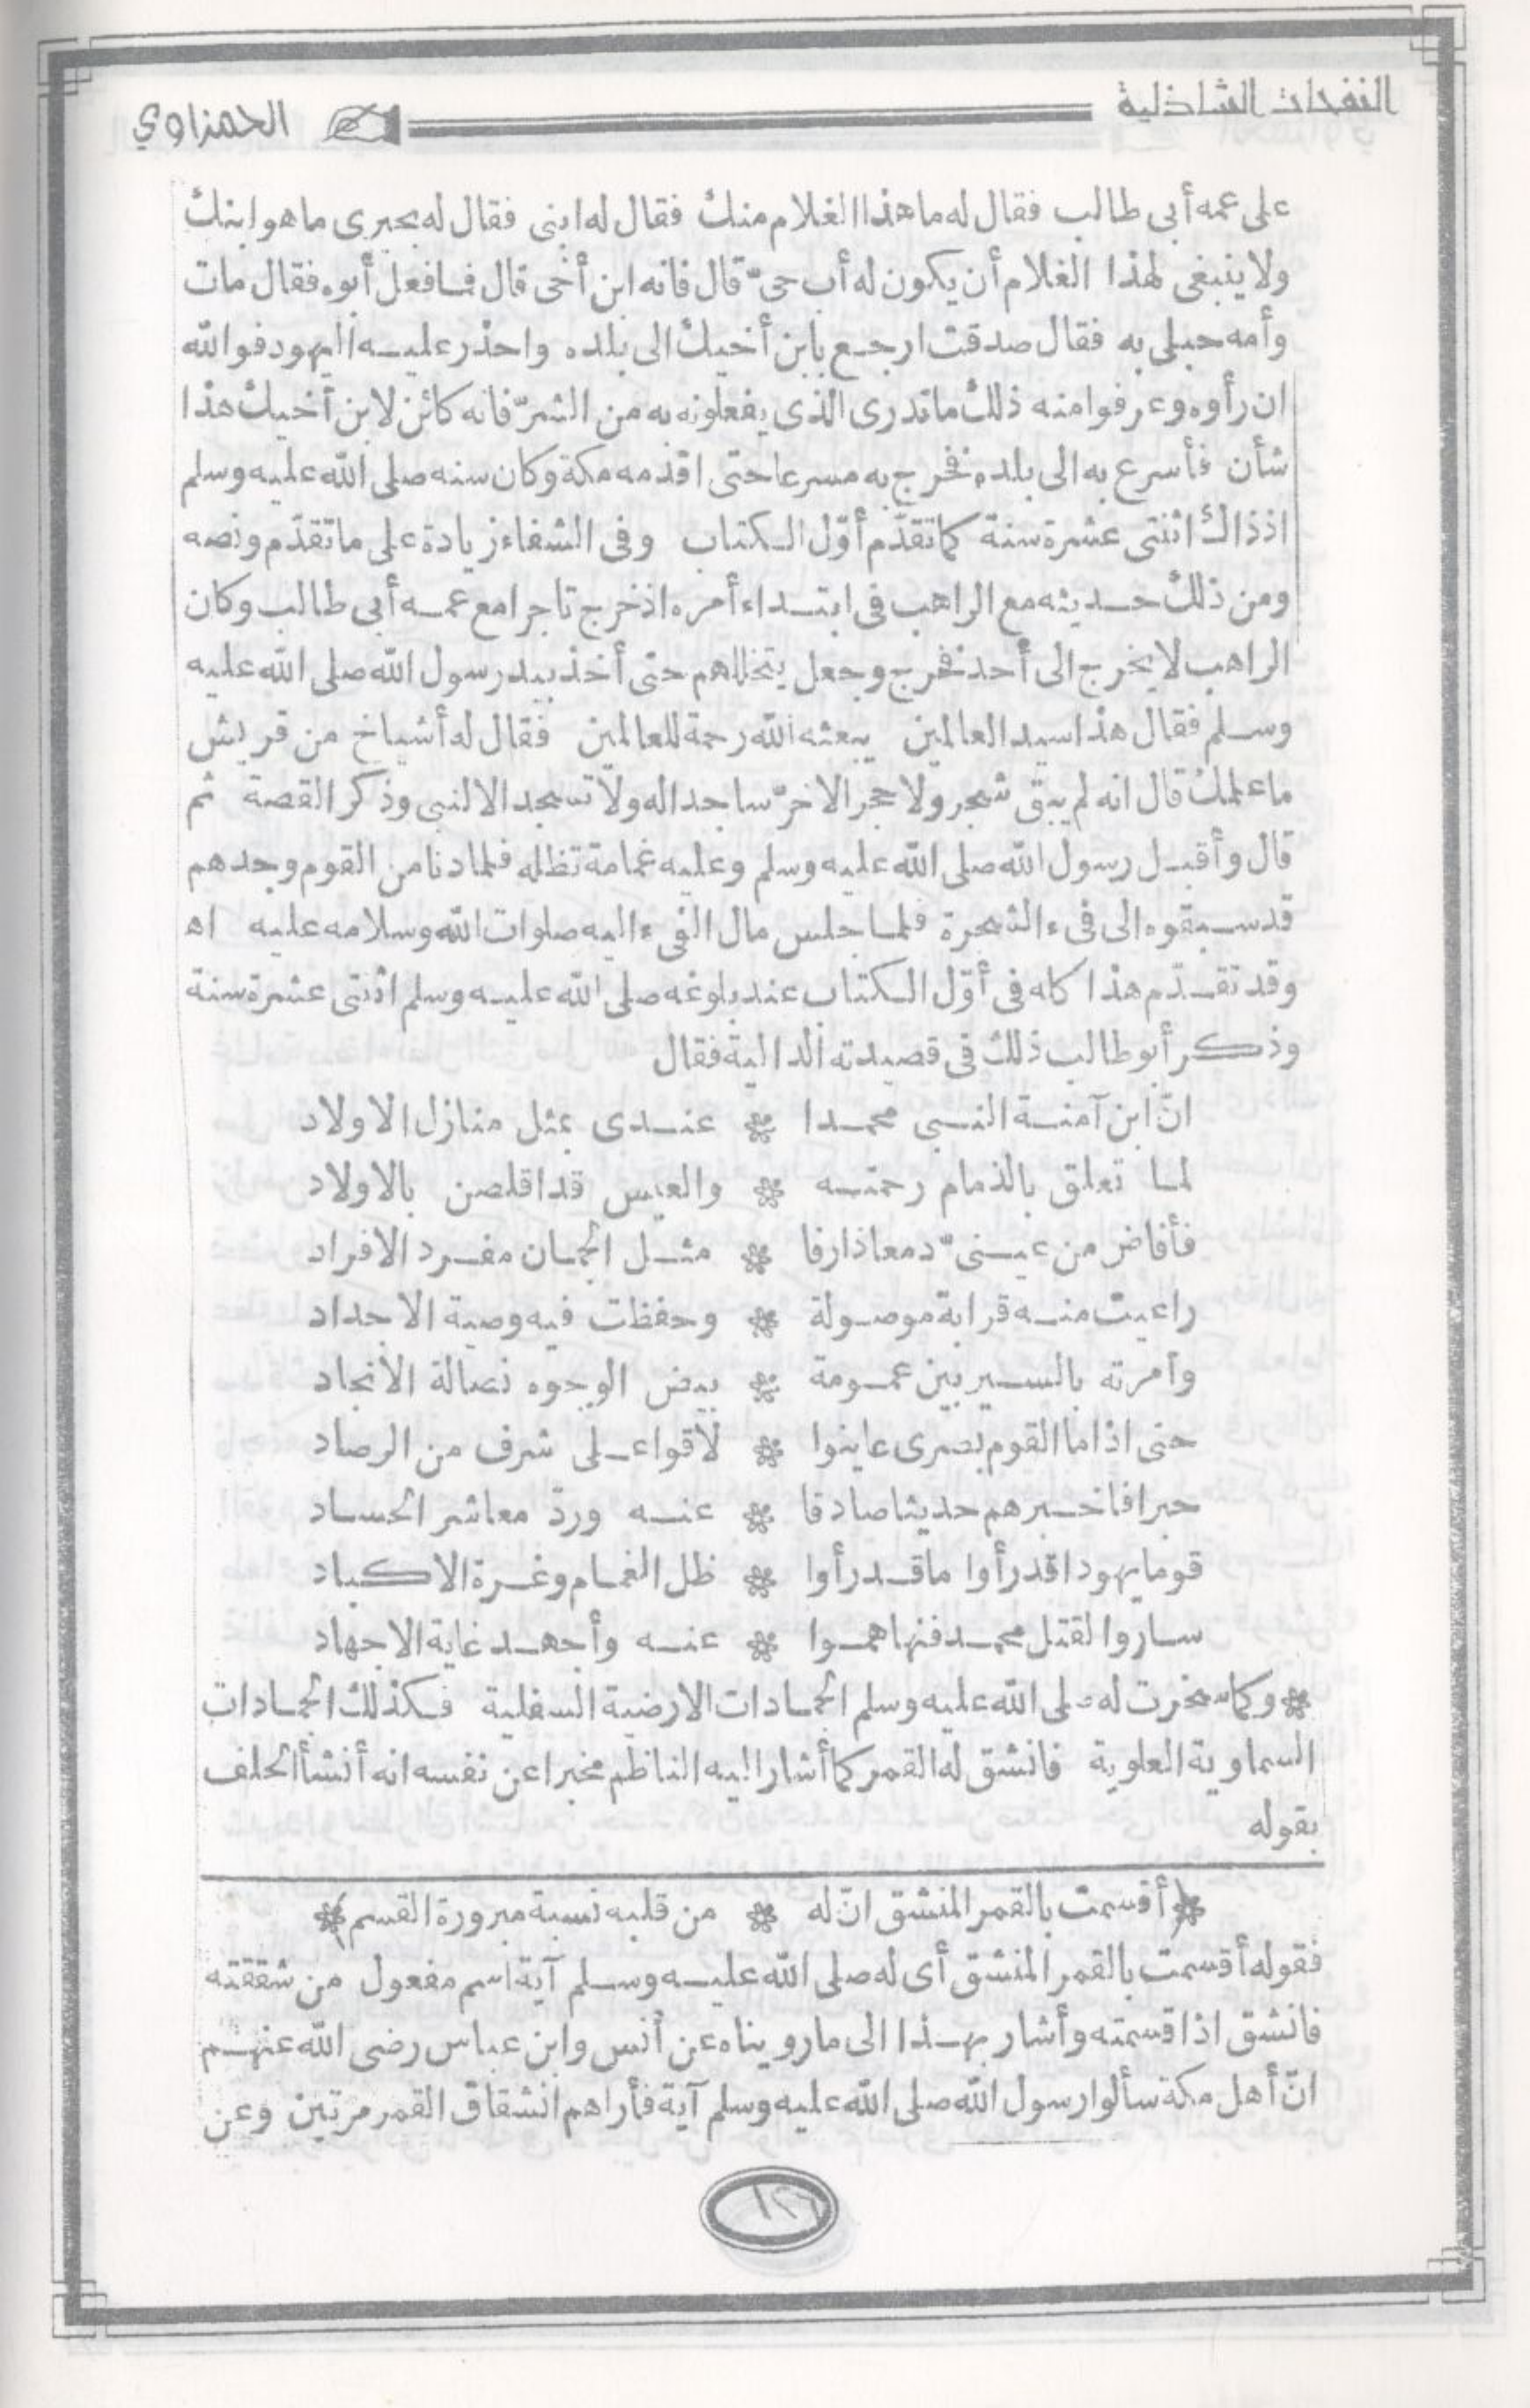 النفحات الشاذلية
الحمزاوي
على عمه أبى طالب فقال له ما هذا الغلام منك فقال له ابنى فقال له بحيرى ما هو ابنك
ولا ينبغى لهذا الغلام أن يكون له أب حىّ قال فانه ابن أخى قال فما فعل أبوه فقال مات
وأمه حبلى به فقال صدقت ارجع بابن أخيك الى بلده واحذر عليه اليهود فوالله
ان رأوه وعرفوا منه ذلك ما تدرى الذى يفعلونه به من الشرّ فانه كائن لابن أخيك هذا
شأن فأسرع به الى بلده فخرج به مسرعا حتى اقدمه مكة وكان سنه صلى الله عليه وسلم
اذ ذاك اثنتى عشرة سنة كما تقدّم أوّل الكتاب وفى الشفاء زيادة على ما تقدّم ونصه
ومن ذلك حديثه مع الراهب فى ابتداء أمره اذ خرج تاجرا مع عمه أبى طالب وكان
الراهب لا يخرج الى أحد فخرج وجعل يتخللهم حتى أخذ بيد رسول الله صلى الله عليه
وسلم فقال هذا سيد العالمين يبعثه الله رحمة للعالمين فقال له أشياخ من قريش
ما علمك قال انه لم يبق شجر ولا حجر الا خرّ ساجدا له ولا تسجد الا لنبى وذكر القصة ثم
قال وأقبل رسول الله صلى الله عليه وسلم وعليه غمامة تظله فلما دنا من القوم وجدهم
قد سبقوه الى فىء الشجرة فلما جلس مال الفىء اليه صلوات الله وسلامه عليه اه
وقد تقدّم هذا كله فى أوّل الكتاب عند بلوغه صلى الله عليه وسلم اثنتى عشرة سنة
وذكر أبو طالب ذلك فى قصيدته الدالية فقال
انّ ابن آمنة النبى محمدا * عندى بمثل منازل الاولاد
لما تعلق بالذمام رحمته * والعيس قد اقلصن بالاولاد
فأفاض من عينىّ دمعا ذارفا * مثل الجمان مفرد الافراد
راعيت منه قرابة موصولة * وحفظت فيه وصية الاجداد
وأمرته بالسير بين عمومة * بيض الوجوه نصالة الانجاد
حتى اذا ما القوم بصرى عاينوا * لاقوا على شرف من الرصاد
حبرا فاخبرهم حديثا صادقا * عنه وردّ معاشر الحساد
قوما يهودا قد رأوا ما قد رأوا * ظل الغمام وغرة الاكباد
ساروا لقتل محمد فنهاهموا * عنه وأجهد غاية الاجهاد
* وكما سخرت له صلى الله عليه وسلم الجمادات الارضية السفلية فكذلك الجمادات
السماوية العلوية فانشق له القمر كما أشار اليه الناظم مخبرا عن نفسه انه أنشأ الحلف
بقوله
* (أقسمت بالقمر المنشق انّ له * من قلبه نسبة مبرورة القسم) *
فقوله أقسمت بالقمر المنشق أى له صلى الله عليه وسلم آية اسم مفعول من شققته
فانشق اذا قسمته وأشار بهذا الى ما رويناه عن أنس وابن عباس رضى الله عنهم
انّ أهل مكة سألوا رسول الله صلى الله عليه وسلم آية فأراهم انشقاق القمر مرتين وعن
١٢٦